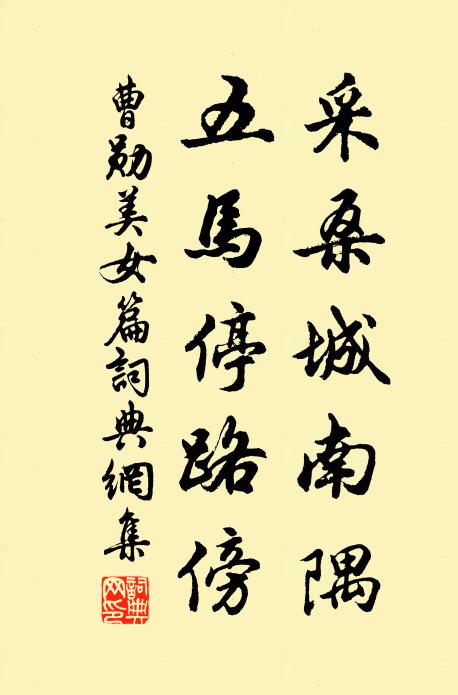 采桑城南隅
五馬停路傍
曹勛美女篇詞典網集
詞典網印